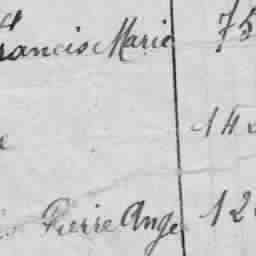 Francis Marie 75
142
Pierre Ange 12